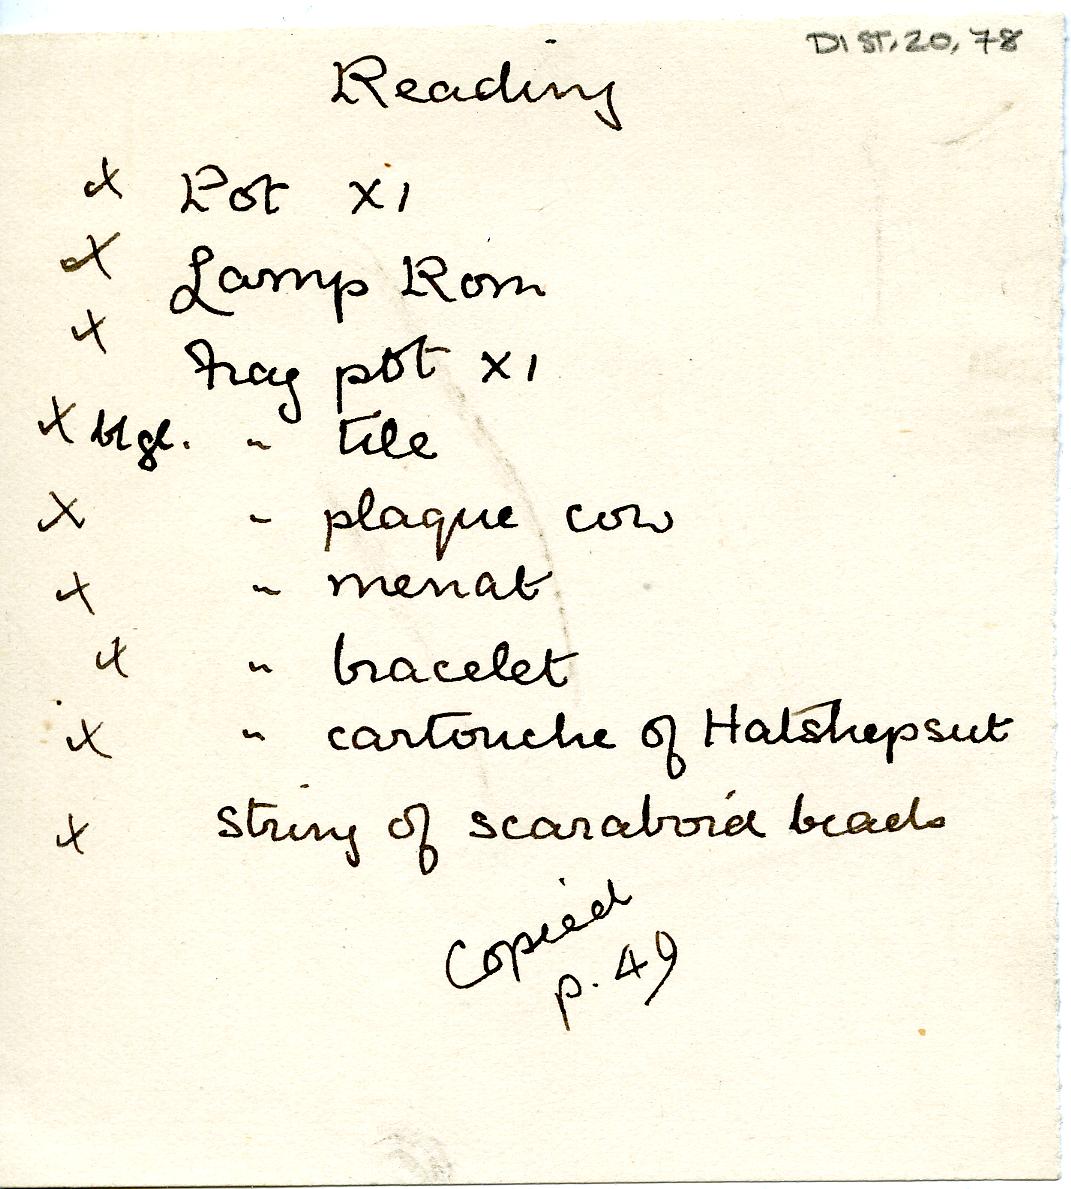 DIST.20,78
Reading
x Pot x1
x Lamp Rom
x Frag pot x1
x bl gl. " tile
x " plaque cow
x " menat
x " bracelet
x " cartouche of Hatshepsut
x string of scaraboid beads
Copied
p. 49